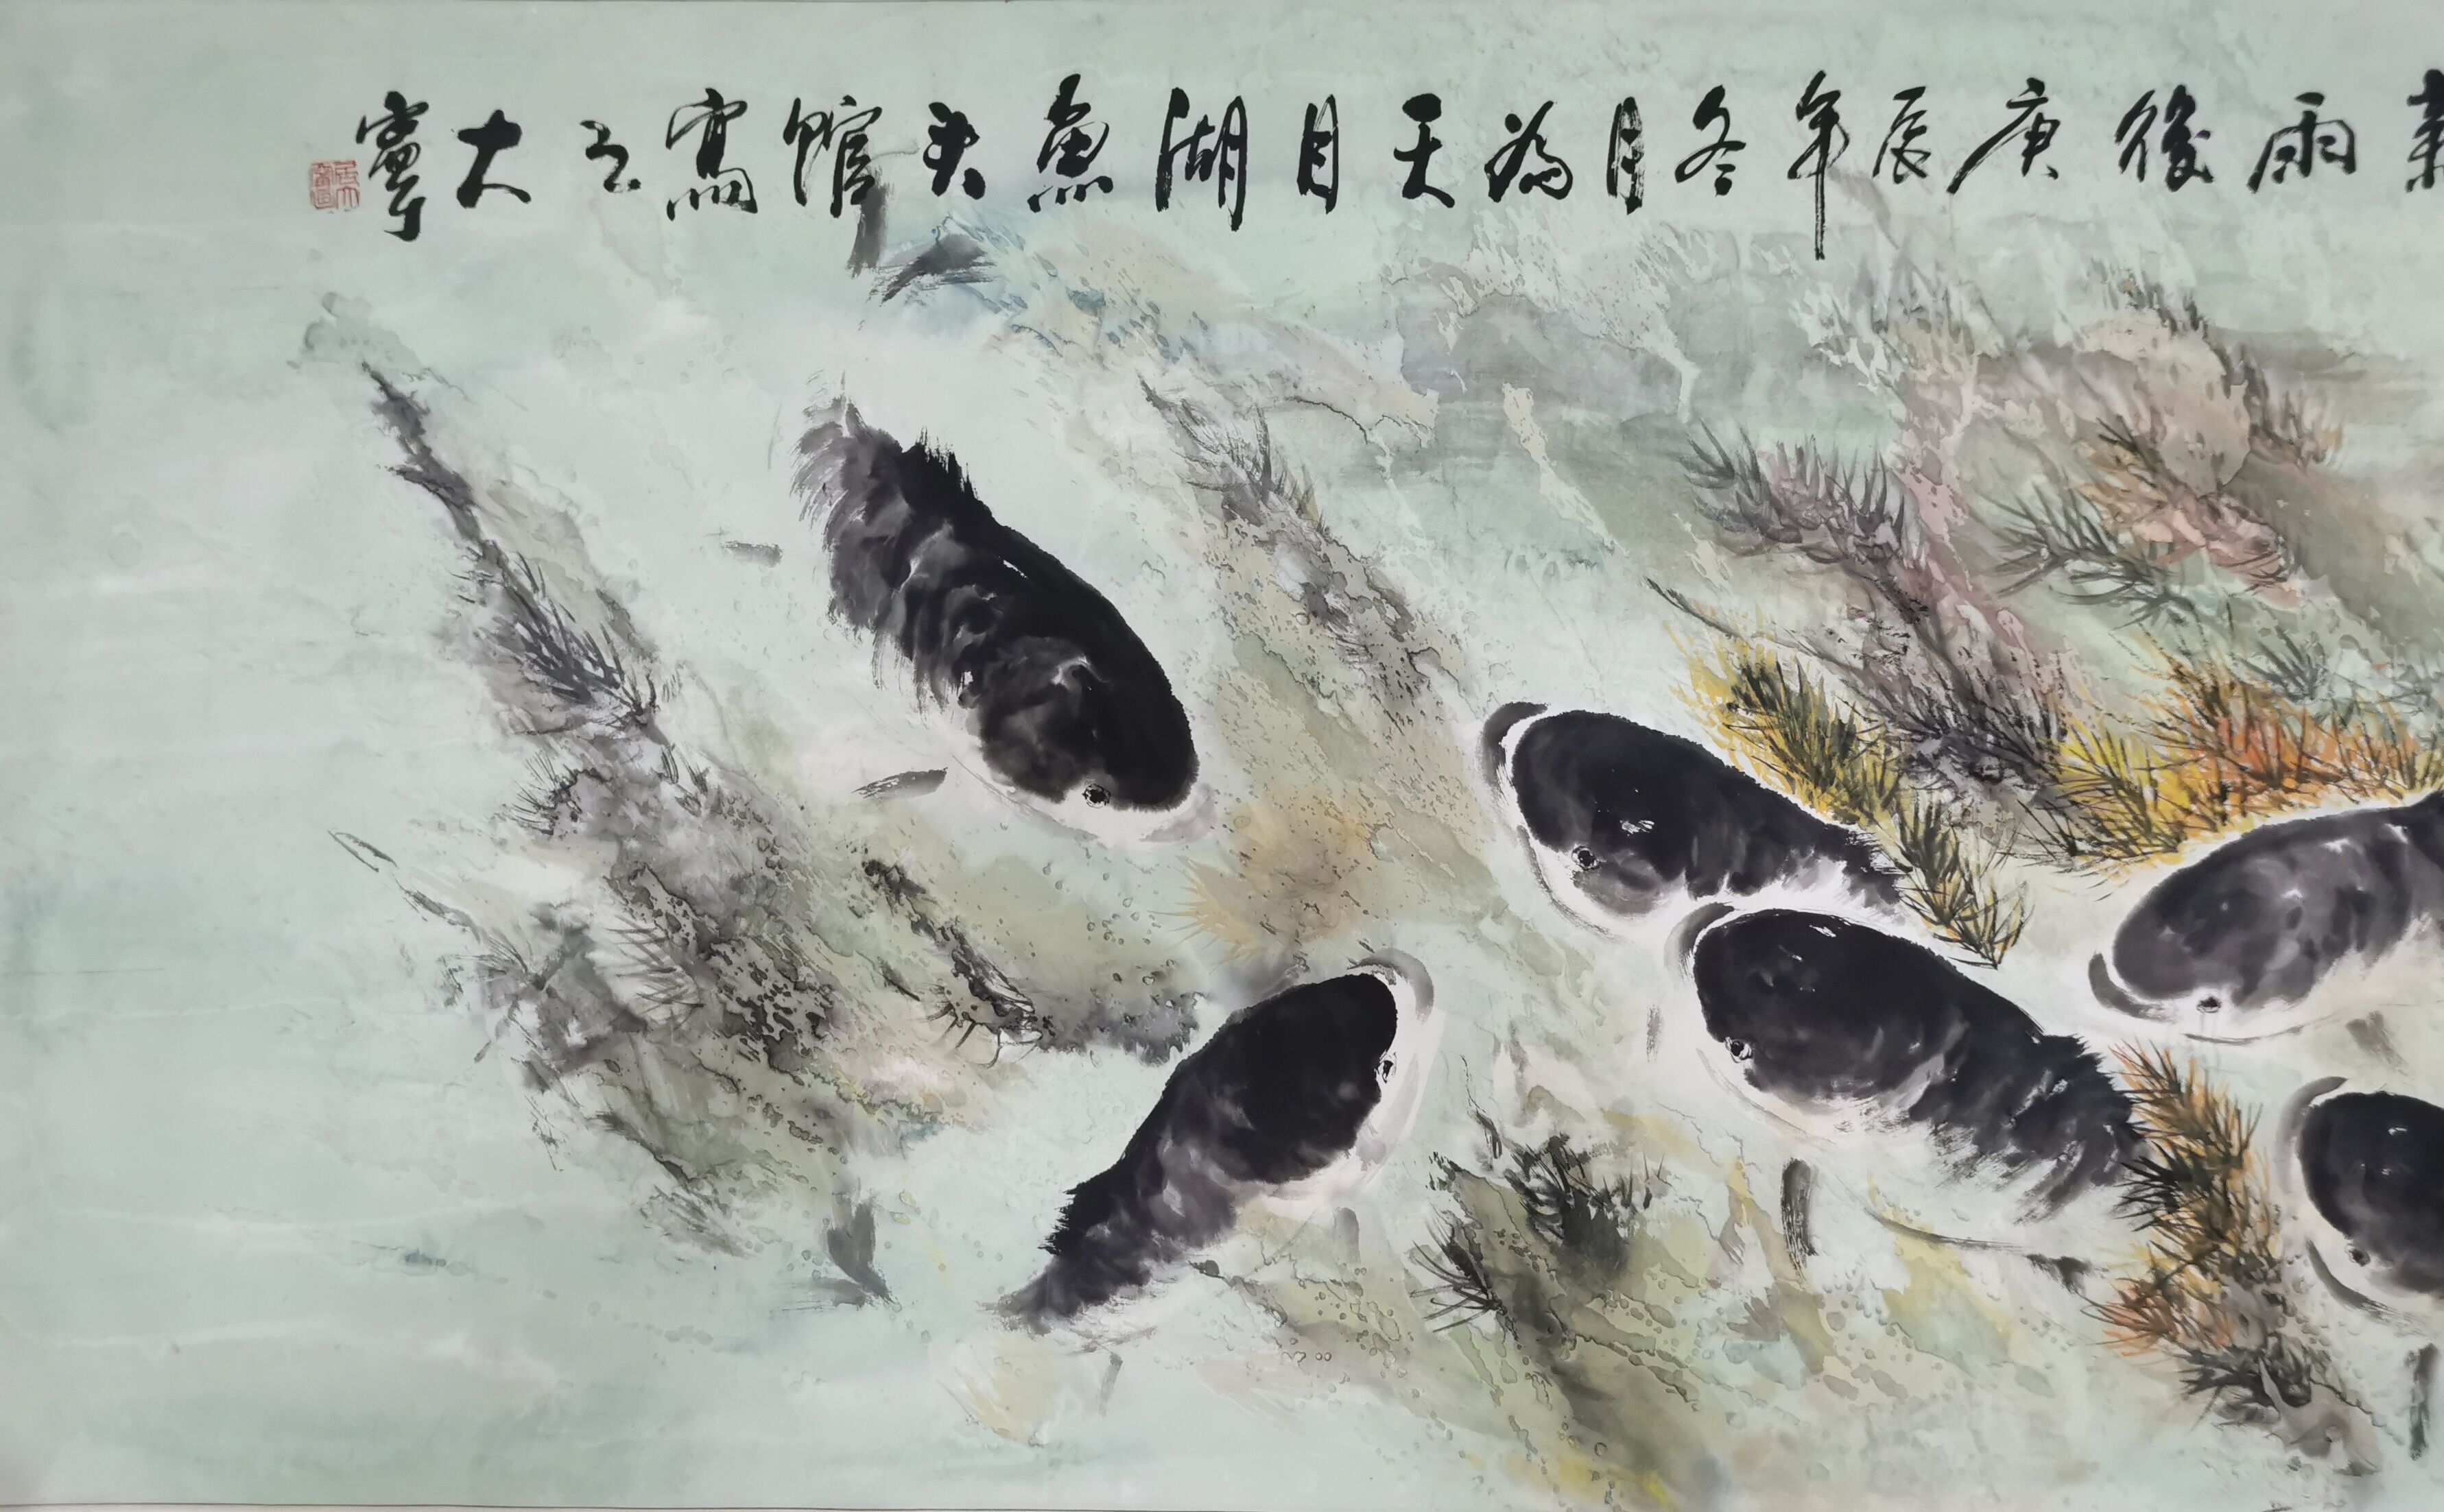 雨後庚辰年冬月為天目湖魚頭館寫之大寧